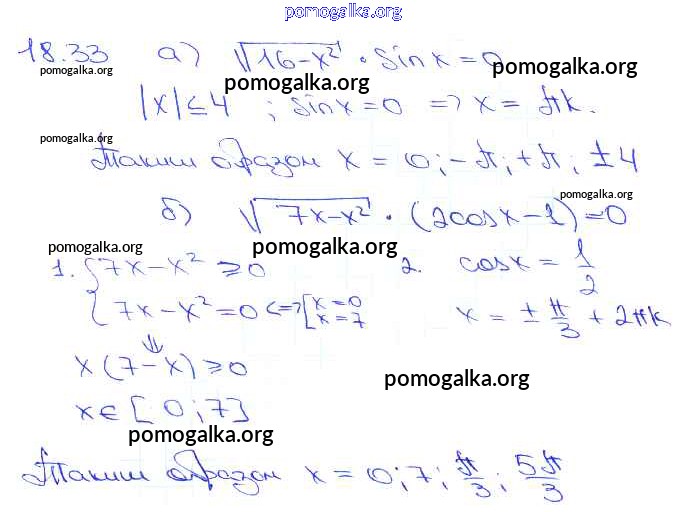 pomogalka.org
18.33 а) √(16-x²) · sin x = 0
pomogalka.org pomogalka.org pomogalka.org
|x| ≤ 4 ; sin x = 0 => x = πk.
pomogalka.org
Таким образом x = 0; -π; +π; ±4
pomogalka.org
б) √(7x-x²) · (2cosx - 1) = 0
pomogalka.org pomogalka.org
1. { 7x - x² ≥ 0 2. cosx = 1/2
7x - x² = 0 <=> [ x = 0 x = 7 x = ± π/3 + 2πk
⇓
x (7 - x) ≥ 0
pomogalka.org
x ∈ [0; 7]
pomogalka.org
Таким образом x = 0; 7; π/3; 5π/3